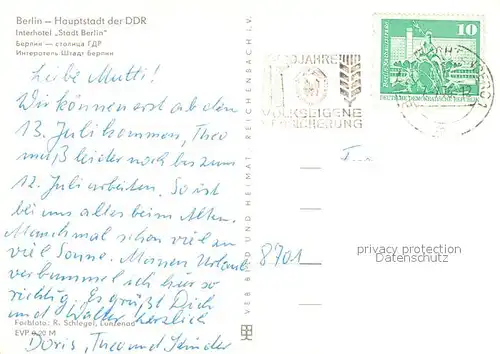 Berlin – Hauptstadt der DDR
Interhotel „Stadt Berlin“
Берлин — столица ГДР
Интеротель Штадт Берлин
Liebe Mutti!
Wir können erst ab dem
13. Juli kommen, Theo
muß leider noch bis zum
12. Juli arbeiten. So ist
bei uns alles beim Alten.
Manchmal schon viel zu
viel Sonne. Meinen Urlaub
verbummel ich hier so
richtig. Es grüßt Dich
und Walter herzlich
Doris, Theo und Kinder
Farbfoto: R. Schlegel, Lunzenau
EVP 0,20 M
VEB BILD UND HEIMAT REICHENBACH I. V.
JAHRE
VOLKSEIGENE
10
DEUTSCHE DEMOKRATISCHE REPUBLIK
8701
privacy protection
Datenschutz